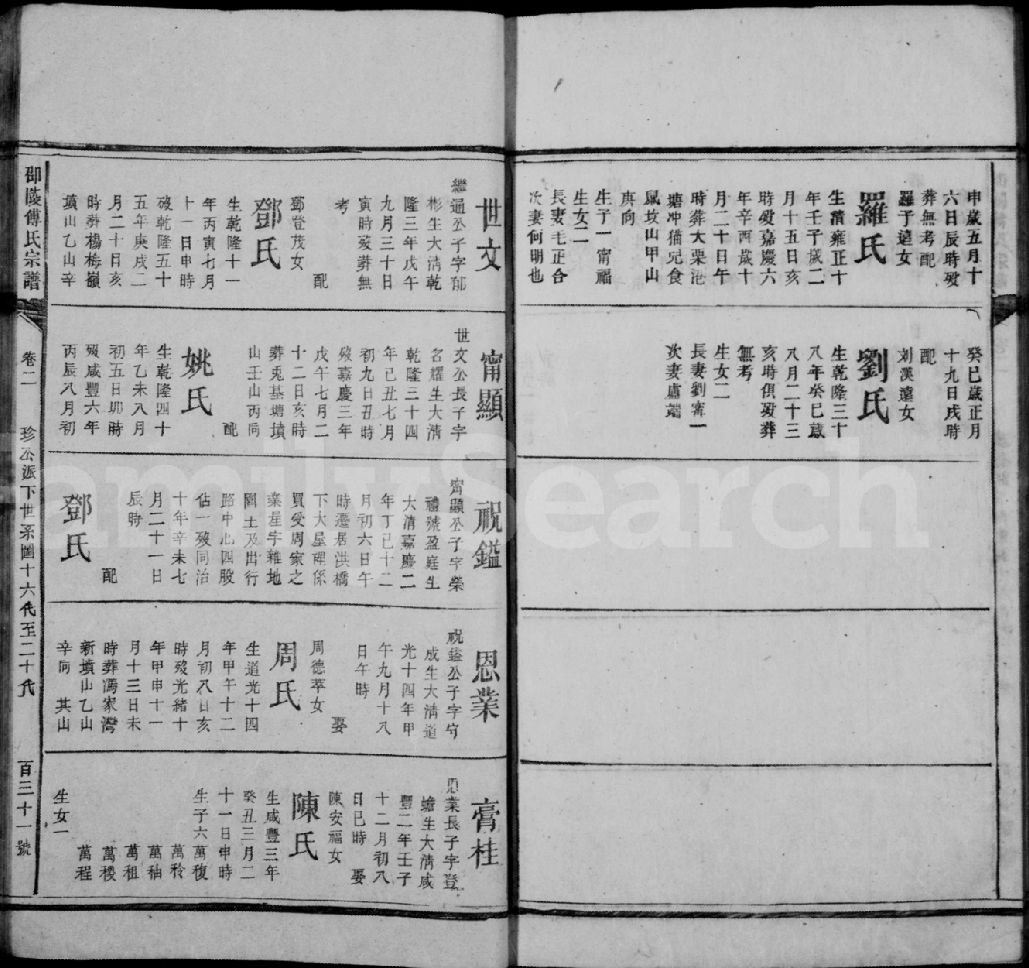 申歲五月十
六日辰時歿
葬無考配
羅于遠女
羅氏
生清雍正十
年壬子歲二
月十五日亥
時歿嘉慶六
年辛酉歲十
月二十日午
時葬大栗池
塘冲猫兒食
鼠坟山甲山
庚向
生子一甯福
生女二
長妻毛正合
次妻何明也
癸巳歲正月
十九日戌時
配
刘漢遠女
劉氏
生乾隆三十
八年癸巳歲
八月二十三
亥時俱歿葬
無考
生女二
長妻劉甯一
次妻盧端
世文
繼通公子字郁
彬生大清乾
隆三年戊午
九月三十日
寅時歿葬無
考
配
鄧登茂女
鄧氏
生乾隆十一
年丙寅七月
十一日申時
歿乾隆五十
五年庚戌二
月二十日亥
時葬楊梅嶺
墳山乙山辛
甯顯
世文公長子字
名耀生大清
乾隆三十四
年己丑七月
初九日丑時
歿嘉慶三年
戊午七月二
十二日亥時
葬兎基塘墳
山壬山丙向
配
姚氏
生乾隆四十
年乙未八月
初五日卯時
歿咸豐六年
丙辰八月初
祝鑑
甯顯公子字榮
禮號盈庭生
大清嘉慶二
年丁巳十二
月初六日午
時遷居洪橋
下大屋裡係
買受周家之
業星字雜地
園土及出行
路中心四股
佔一歿同治
十年辛未七
月二十一日
辰時
配
鄧氏
恩業
祝鑑公子字守
成生大清道
光十四年甲
午九月十八
日午時
娶
周德萃女
周氏
生道光十四
年甲午十二
月初八日亥
時歿光緒十
年甲申十一
月十三日未
時葬馮家灣
新墳山乙山
辛向 其山
膏桂
恩業長子字登
蟾生大清咸
豐二年壬子
十二月初八
日巳時
娶
陳安福女
陳氏
生咸豐三年
癸丑三月二
十一日申時
生子六萬馥
萬秢
萬秞
萬租
萬稜
萬程
生女一
邵陵傅氏宗譜
卷二
珍公派下世系圖十六代至二十代
百三十一號
FamilySearch